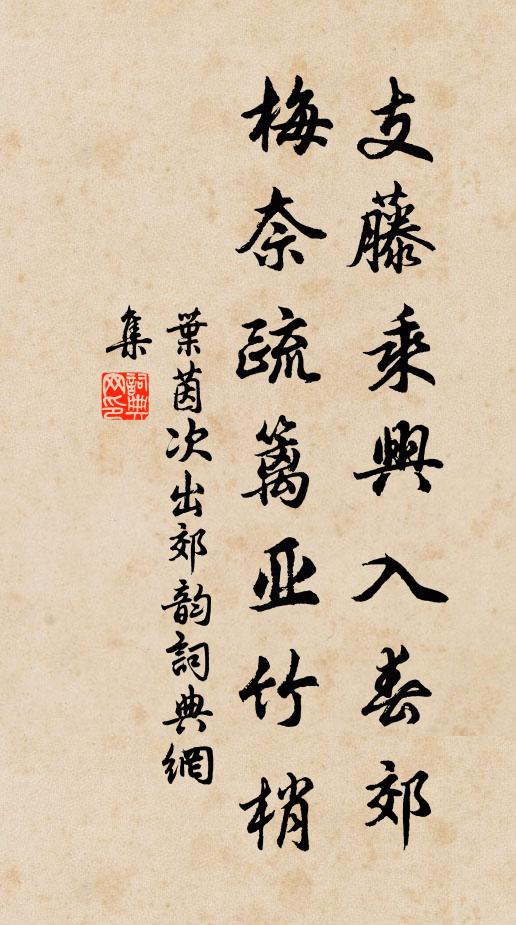 支藤乘興入春郊
梅奈疏篱亚竹梢
葉茵次出郊韵詞典網
集
詞典
网印